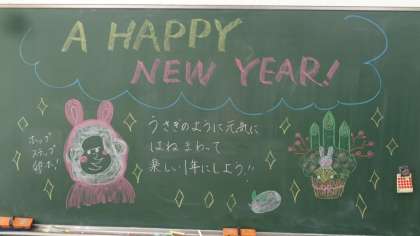 A HAPPY
NEW YEAR!
うさぎのように元気に
はねまわって
楽しい1年にしよう!!
ホップ
ステップ